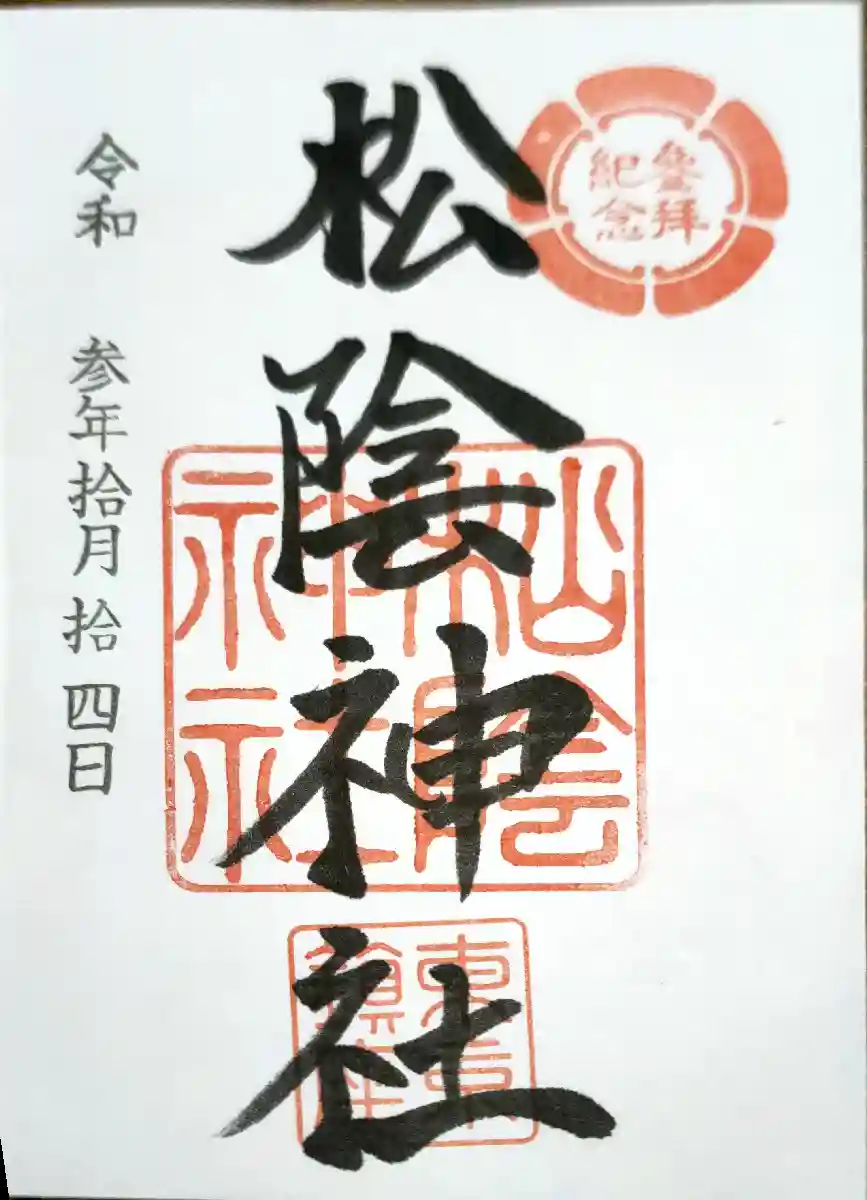 參拜
紀念
松陰神社
松陰
神社
東京
鎮座
令和 参年拾月拾四日